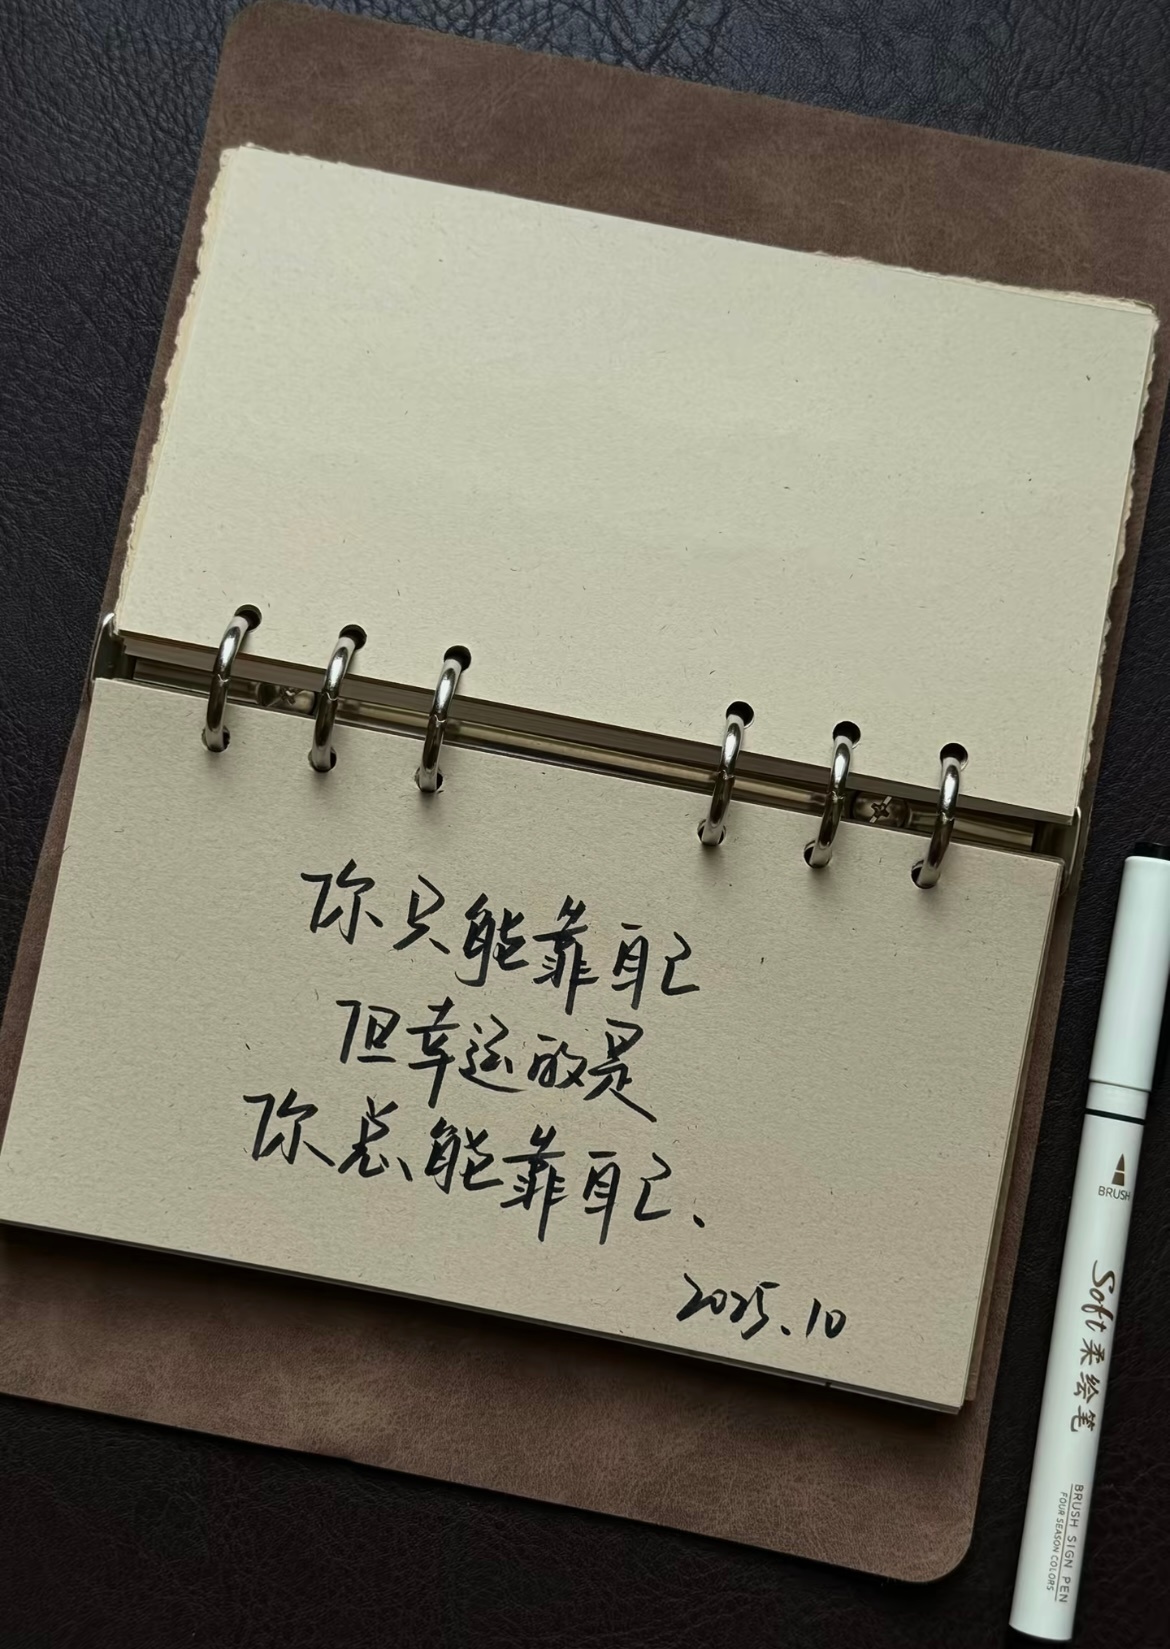 你只能靠自己
但幸运的是
你总能靠自己、
2025.10
BRUSH
Soft 柔绘笔
BRUSH SIGN PEN
FOUR SEASON COLORS